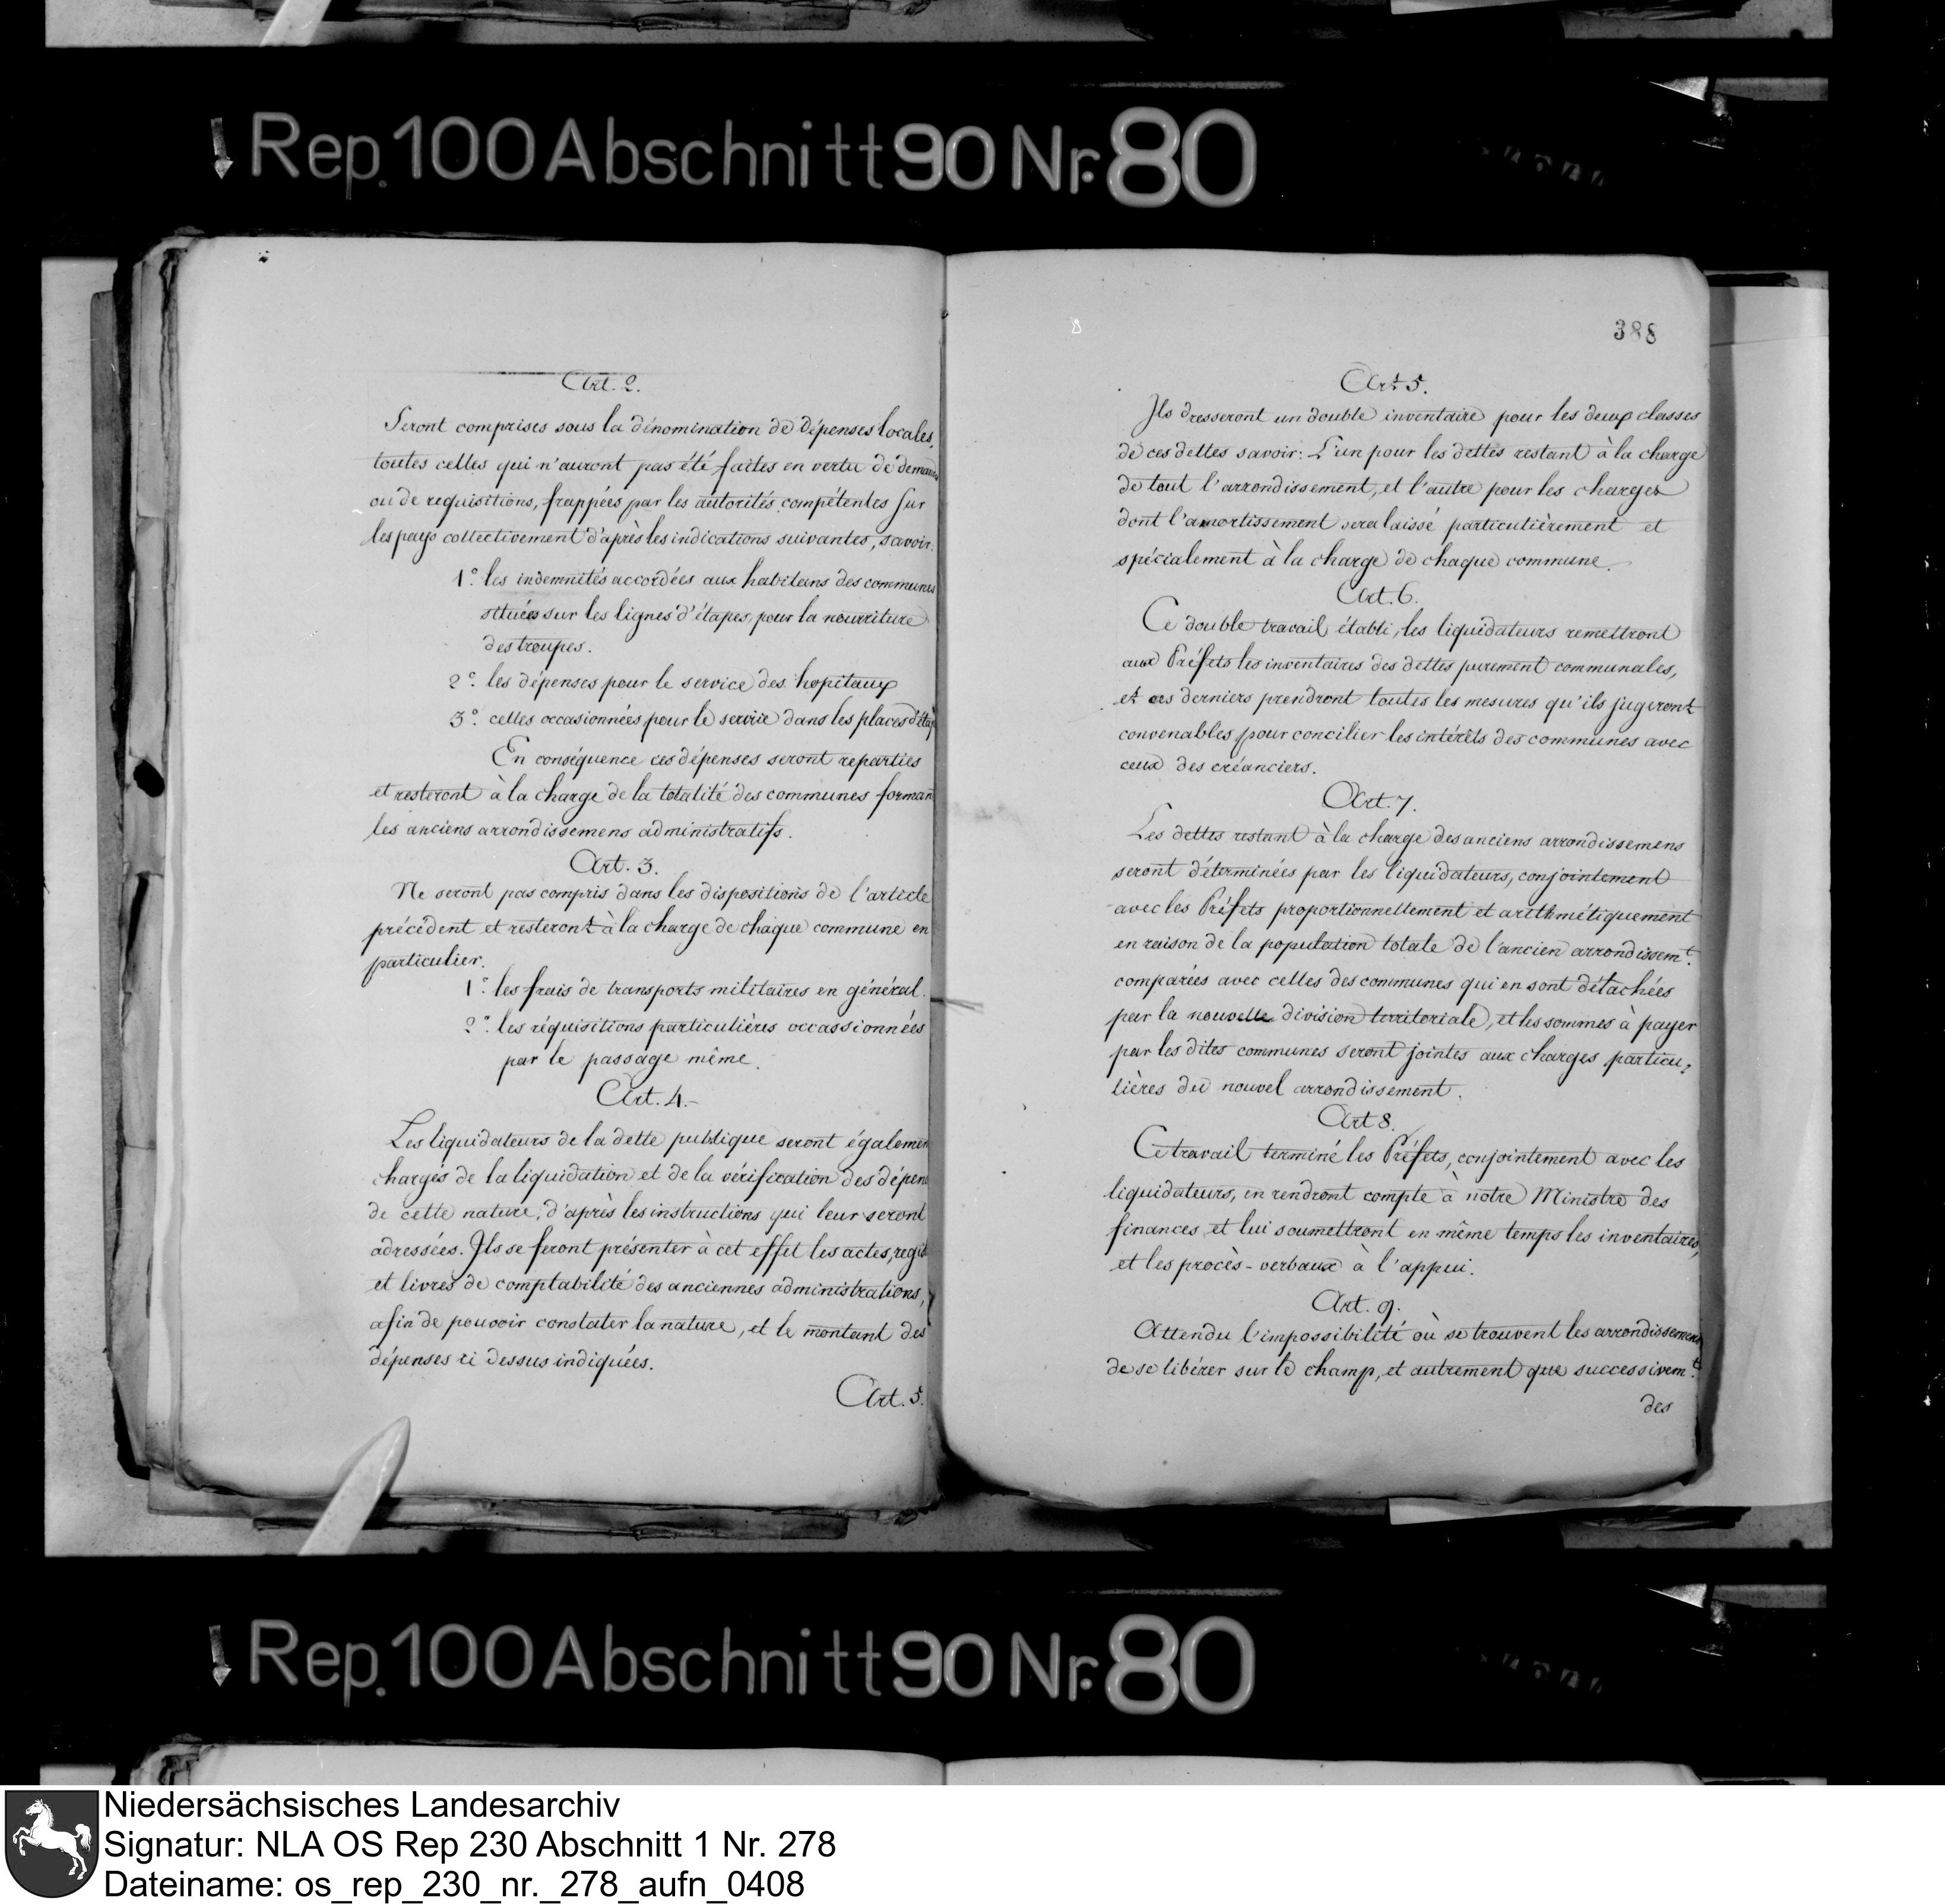 Rep. 100 Abschnitt 90 Nr. 80
Art. 2.
Seront comprises sous la dénomination de dépenses locales,
toutes celles qui n'auront pas été faites en vertu de deman
ou de requisitions, frappées par les autorités compétentes sur
les pays collectivement d'après les indications suivantes, savoir:
1.° les indemnités accordées aux habitans des communes
situées sur les lignes d'étapes, pour la nourriture
des troupes.
2.° les dépenses pour le service des hopitaux
3.° celles occasionnées pour le service dans les places d'étap
En conséquence ces dépenses seront reparties
et resteront à la charge de la totalité des communes forman
les anciens arrondissemens administratifs.
Art. 3.
Ne seront pas compris dans les dispositions de l'article
précédent et resteront à la charge de chaque commune en
particulier.
1.° les frais de transports militaires en général.
2.° les réquisitions particulières occassionnées
par le passage même.
Art. 4.-
Les liquidateurs de la dette publique seront égalemen
chargés de la liquidation et de la vérification des dépen
de cette nature, d'après les instructions qui leur seront
adressées. Ils se feront présenter à cet effet les actes, regis
et livres de comptabilité des anciennes administrations,
afin de pouvoir constater la nature, et le montant des
dépenses ci dessus indiquées.
Art. 5.
388
Art 5.
Ils dresseront un double inventaire pour les deux classes
de ces dettes savoir: L'un pour les dettes restant à la charge
de tout l'arrondissement, et l'autre pour les charges
dont l'amortissement sera laissé particulièrement et
spécialement à la charge de chaque commune.
Art. 6.
Ce double travail établi, les liquidateurs remettront
aux Préfets les inventaires des dettes purement communales,
et ces derniers prendront toutes les mesures qu'ils jugeront
convenables pour concilier les intérêts des communes avec
ceux des créanciers.
Art. 7.
Les dettes restant à la charge des anciens arrondissemens
seront déterminées par les liquidateurs, conjointement
avec les Préfets proportionnellement et arithmétiquement
en raison de la population totale de l'ancien arrondissem.t
comparées avec celles des communes qui en sont détachées
par la nouvelle division territoriale, et les sommes à payer
par les dites communes seront jointes aux charges particu,
lières du nouvel arrondissement.
Art 8.
Ce travail terminé les Préfets, conjointement avec les
liquidateurs, en rendront compte à notre Ministre des
finances et lui soumettront en même temps les inventaires,
et les procès-verbaux à l'appui.
Art. 9.
Attendu l'impossibilité où se trouvent les arrondissemens
de se libérer sur le champ, et autrement que successivem.t
des
Rep. 100 Abschnitt 90 Nr. 80
Niedersächsisches Landesarchiv
Signatur: NLA OS Rep 230 Abschnitt 1 Nr. 278
Dateiname: os_rep_230_nr._278_aufn_0408